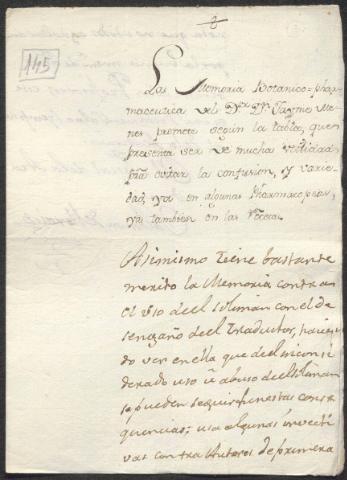 145
La Memoria Botanico-phar-
maceutica del Dr. Dn. Jayme Me-
nos promete segun la tabla, que
presenta ser de mucha utilidad
pra evitar la confusion, y varie-
dad, ya en algunas Pharmacopeas,
ya tambien en las
Asimismo tiene bastante
merito la Memoria contra
el uso del soliman con el de
sengaño del Traductor, hacien
do ver en ella que del inconsi
derado uso u abuso del soliman
se pueden seguir funestas conse
quencias; usa algunas invecti
vas contra Autores de primera